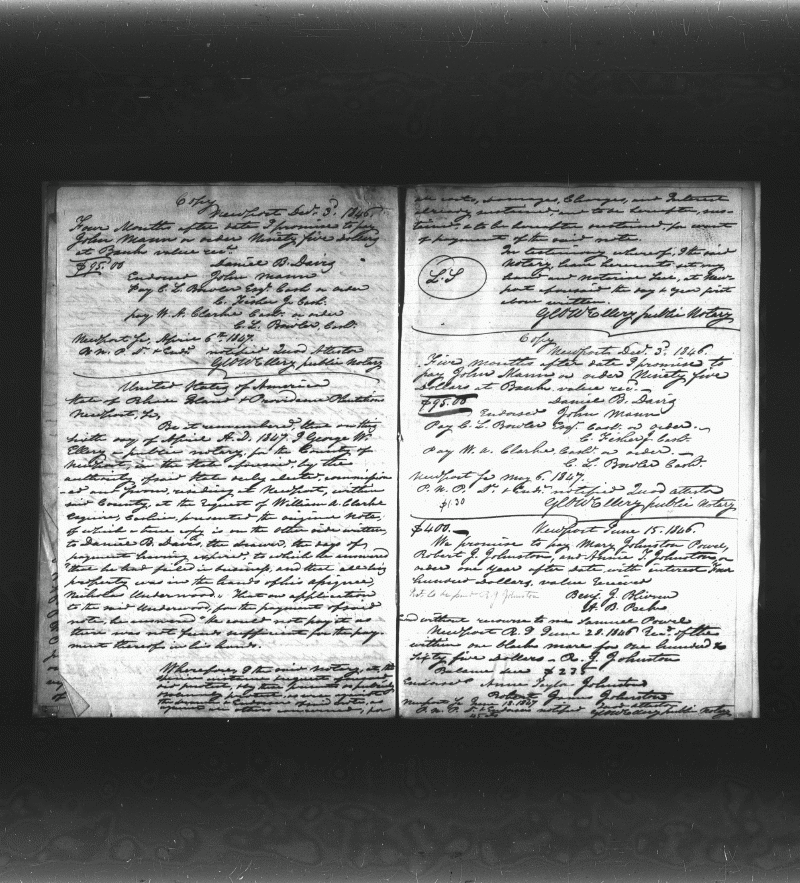 Copy
Newport Decr. 3d. 1846.
Four Months after date I promise to pay
John Mann or order Ninety five dollars
at Banks value recd.
$95.00 Daniel B. Davis
Endorsed John Mann
Pay C. L. Bowler Esqr. Cash. or order
C. Fisher Jr Cash.
pay W. A. Clarke Cash. or order
C. L. Bowler, Cash.
Newport Ss. April 6th. 1847.
notified Quod Attestor
Geo W Ellery public Notary
United States of America
State of Rhode Island & Providence Plantations
Newport, Ss,
Be it remembered, that on this
sixth day of April A.D. 1847. I George W.
Ellery a public notary, for the County of
Newport, in the State aforesaid, by the
authority of said State duly elected, commission-
ed and sworn, residing at Newport, within
said County, at the request of William A. Clarke
Esquire, Cashier, presented the original Note,
of which a true copy is on the other side written,
to Daniel B. Davis, the drawer, the days of
payment having expired, to which he answered
"that he had failed in business, and that all his
property was in the hands of his assignee,
Nicholas Underwood." That on application
to the said Underwood, for the payment of said
note, he answered "He could not pay it as
there was not funds sufficient for the pay-
ment thereof in his hands.
Wherefore, I the said Notary, at the
request aforesaid
on costs, damages, Charges, and Interest
already sustained, and to be hereafter, sus-
tained, or to be hereafter sustained, for want
of payment of the said note.
In testimony whereof, I the said
Notary, have hereunto set my
hand and notarial Seal, at New-
port aforesaid the day & year first
above written.
L.S
Geo W Ellery public Notary
Copy
Newport Decr. 3d. 1846.
Five Months after date I promise to
pay John Mann or order Ninety five
Dollars at Banks value recd.
$95.00 Daniel B. Davis
Endorsed John Mann
Pay C. L. Bowler Esqr. Cash. or order.
C. Fisher Jr. Cash.
Pay W. A. Clarke Cash. or order.
C. L. Bowler Cash.
Newport Ss May 6. 1847.
notified Quod attestor
$1.30 Geo W Ellery public Notary
$400. Newport June 15. 1846.
We promise to pay Mary Johnston Powel,
Robert J. Johnston, and Johnston, or
order one year after date, with interest Four
hundred Dollars, value received
Benj. J.
W. B.
without recourse to me Samuel Powel
Newport R.I June 28. 1846 Recd. of the
within one hundred &
sixty five dollars R. J. Johnston
Balance due $235
Endorsed Johnston
Robert Johnston
Newport Ss June 18. 1847
notified Quod attestor
Geo W Ellery public Notary